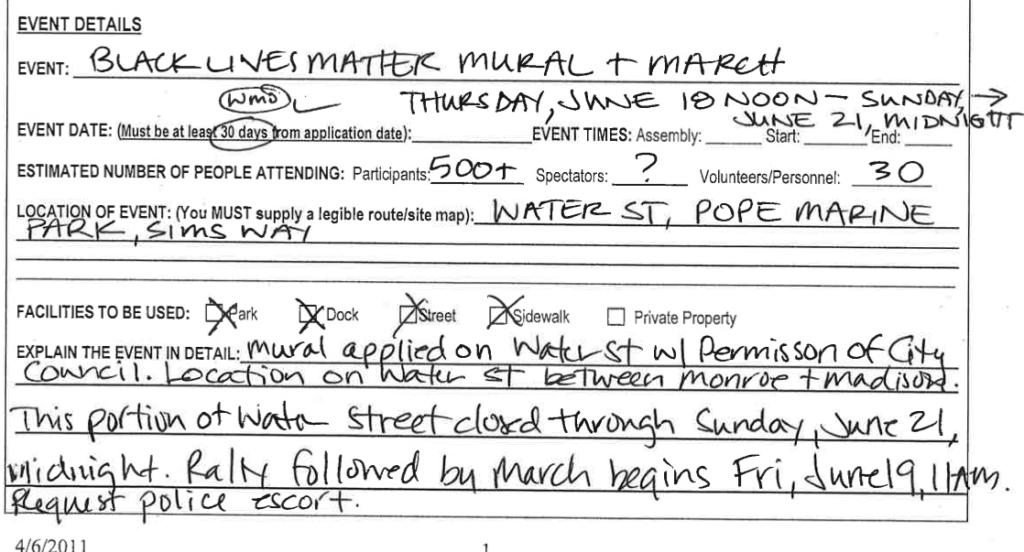 EVENT DETAILS
EVENT: BLACK LIVES MATTER MURAL + MARCH
WMD THURSDAY, JUNE 18 NOON – SUNDAY, →
JUNE 21, MIDNIGHT
EVENT DATE: (Must be at least 30 days from application date): EVENT TIMES: Assembly: Start: End:
ESTIMATED NUMBER OF PEOPLE ATTENDING: Participants: 500+ Spectators: ? Volunteers/Personnel: 30
LOCATION OF EVENT: (You MUST supply a legible route/site map): WATER ST, POPE MARINE
PARK, SIMS WAY
FACILITIES TO BE USED: Park Dock Street Sidewalk Private Property
EXPLAIN THE EVENT IN DETAIL: Mural applied on Water St w/ Permisson of City
Council. Location on Water St between Monroe + Madison.
This portion of Water Street closed through Sunday, June 21,
midnight. Rally followed by March begins Fri, June 19, 11AM.
Request police escort.
4/6/2011 1